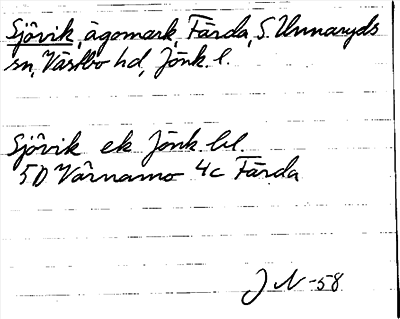 Sjövik, ägomark, Färda, S. Unnaryds
sn, Västbo hd, Jönk. l.
Sjövik ek Jönk. bl.
5D Värnamo 4c Färda
J N -58